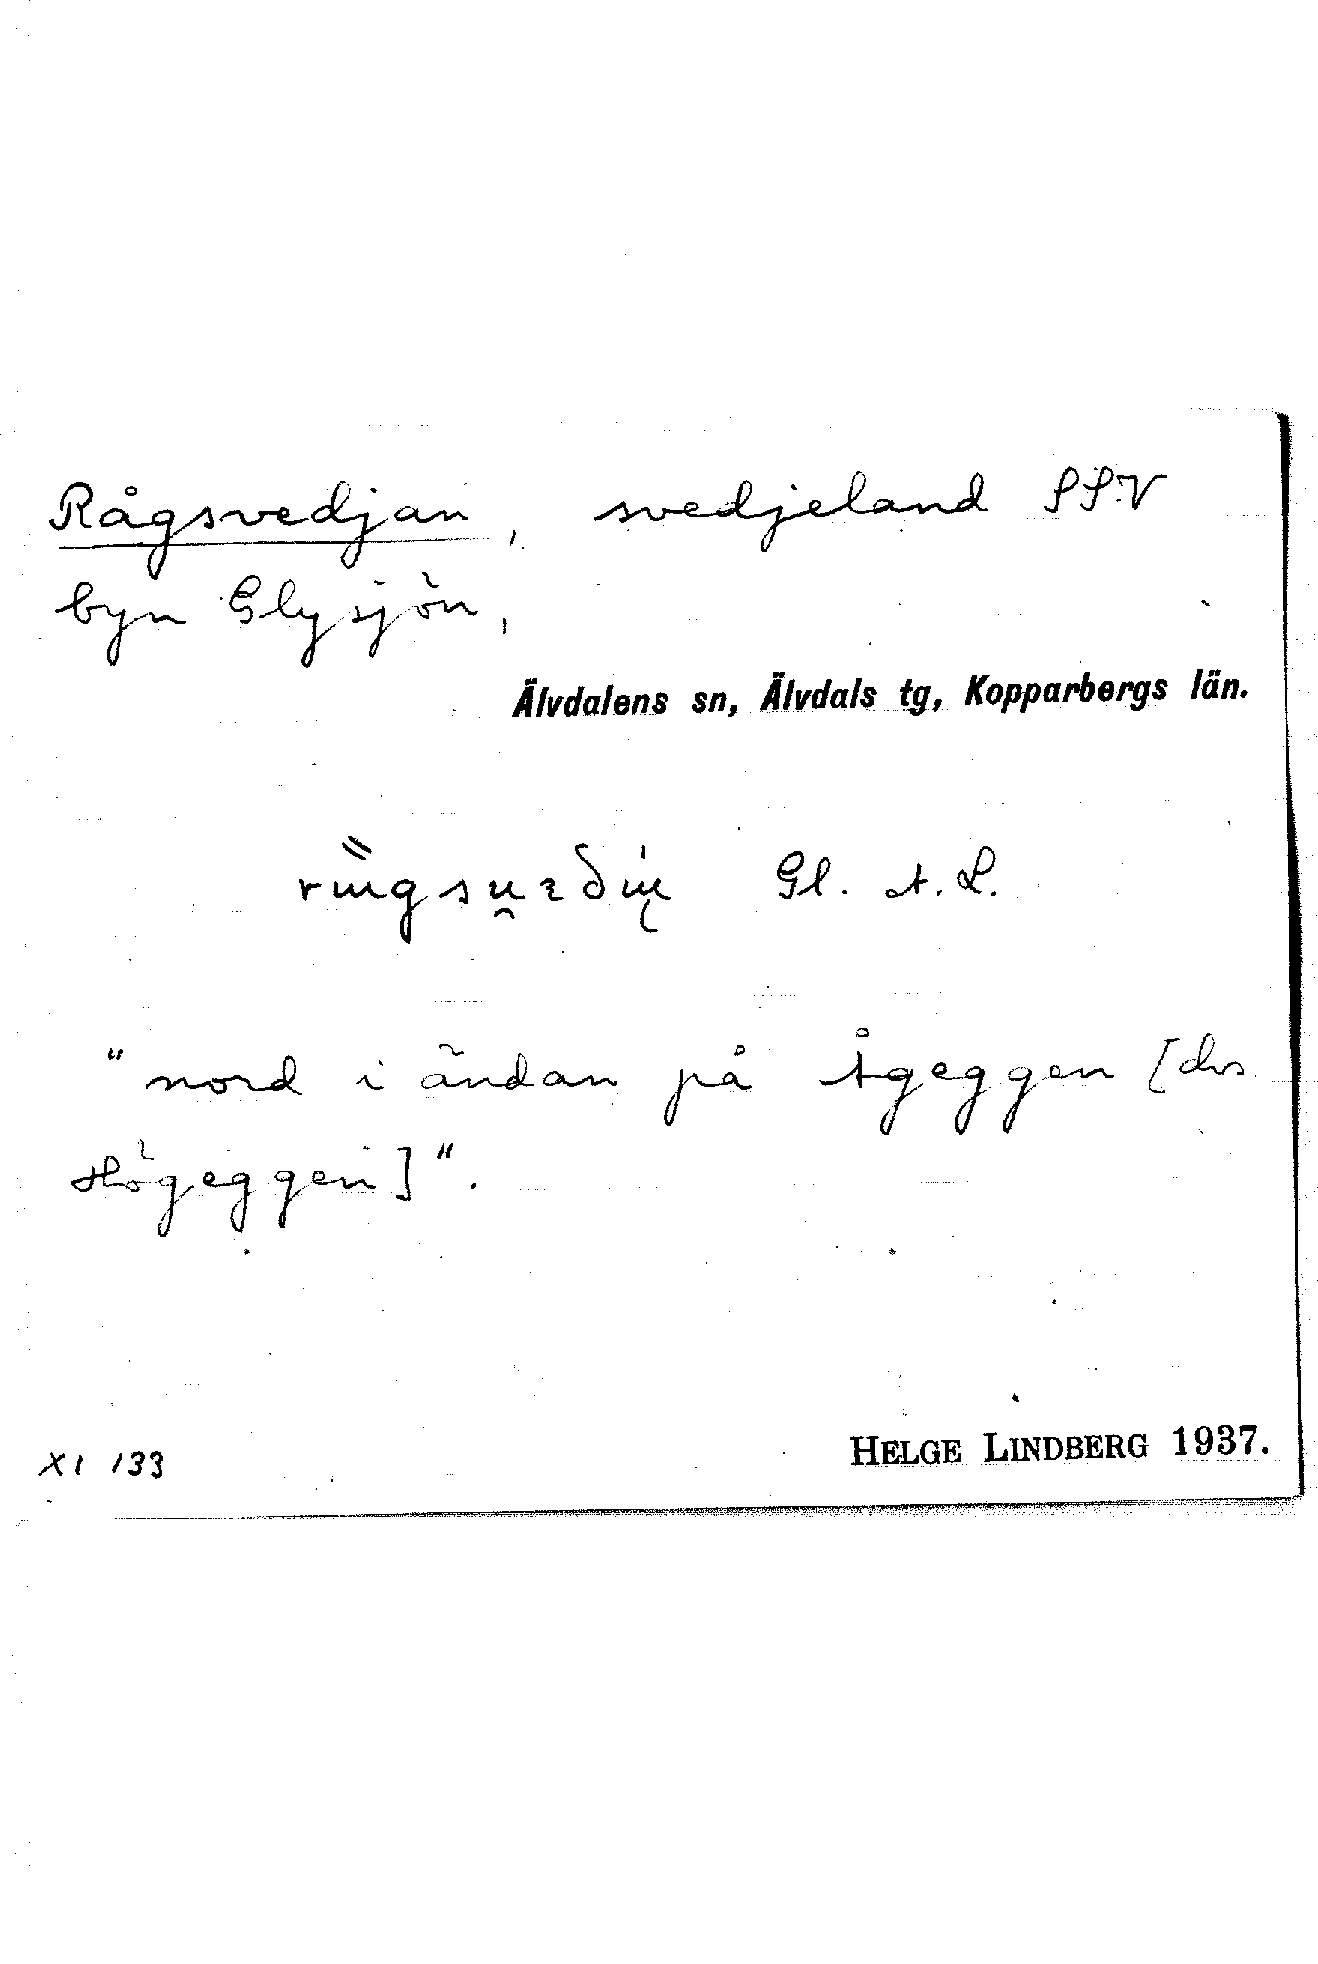 Rågsvedjan, svedjeland SSV
byn Glysjön,
Älvdalens sn, Älvdals tg, Kopparbergs län.
Gl. A. L.
"nord i ändan på Ågeggen [dvs
Högeggen]".
XI 133
HELGE LINDBERG 1937.